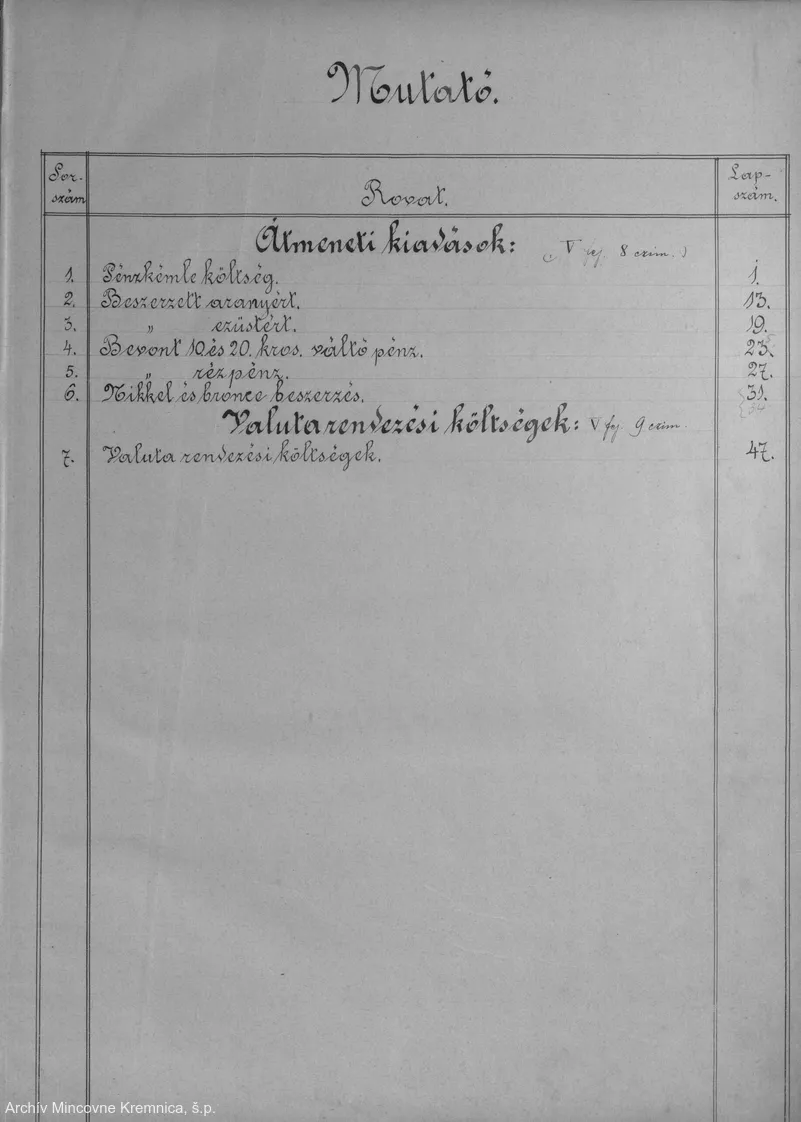 Mutató.
Sor-szám Rovat. Lap-szám.
Átmeneti kiadások: (V fej. 8 czim.)
1. Pénzkémle költség. 1.
2. Beszerzett aranyért. 13.
3. „ ezüstért. 19.
4. Bevont 10 és 20. kros. váltó pénz. 23.
5. „ réz pénz. 27.
6. Nikkel és bronce beszerzés. 31.
Valuta rendezési költségek: V fej. 9 czim.
7. Valuta rendezési költségek. 47.
Archív Mincovne Kremnica, š.p.